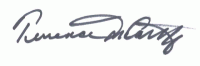 Terrence McCarthy